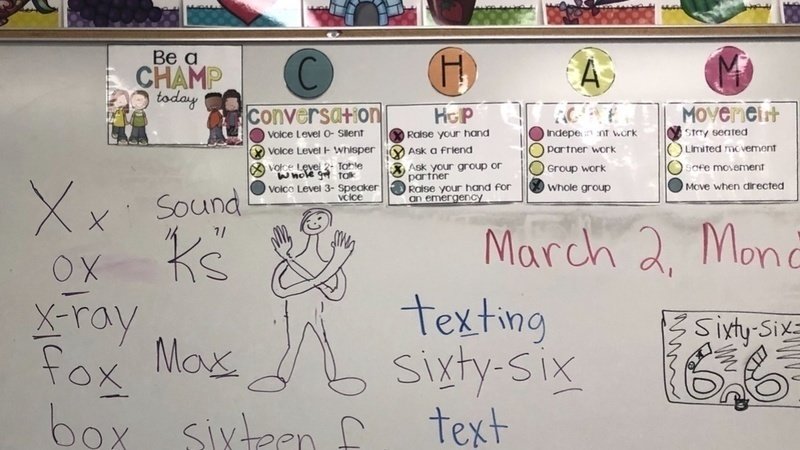 Be a
CHAMP
today
C
H
A
M
Conversation
Voice Level 0- Silent
Voice Level 1- Whisper
Voice Level 2- Table
Whole grp Talk
Voice Level 3- Speaker
voice
Help
Raise your hand
Ask a friend
Ask your group or
partner
Raise your hand for
an emergency
Independent work
Partner work
Group work
Whole group
Movement
Stay seated
Limited movement
Safe movement
Move when directed
X x
sound
"Ks"
ox
x-ray
fox
box
Max
sixteen f
March 2, Mond
texting
sixty-six
text
sixty-six=
66